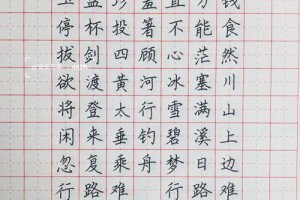 玉盘珍羞直万钱
停杯投箸不能食
拔剑四顾心茫然
欲渡黄河冰塞川
将登太行雪满山
闲来垂钓碧溪上
忽复乘舟梦日边
行路难 行路难